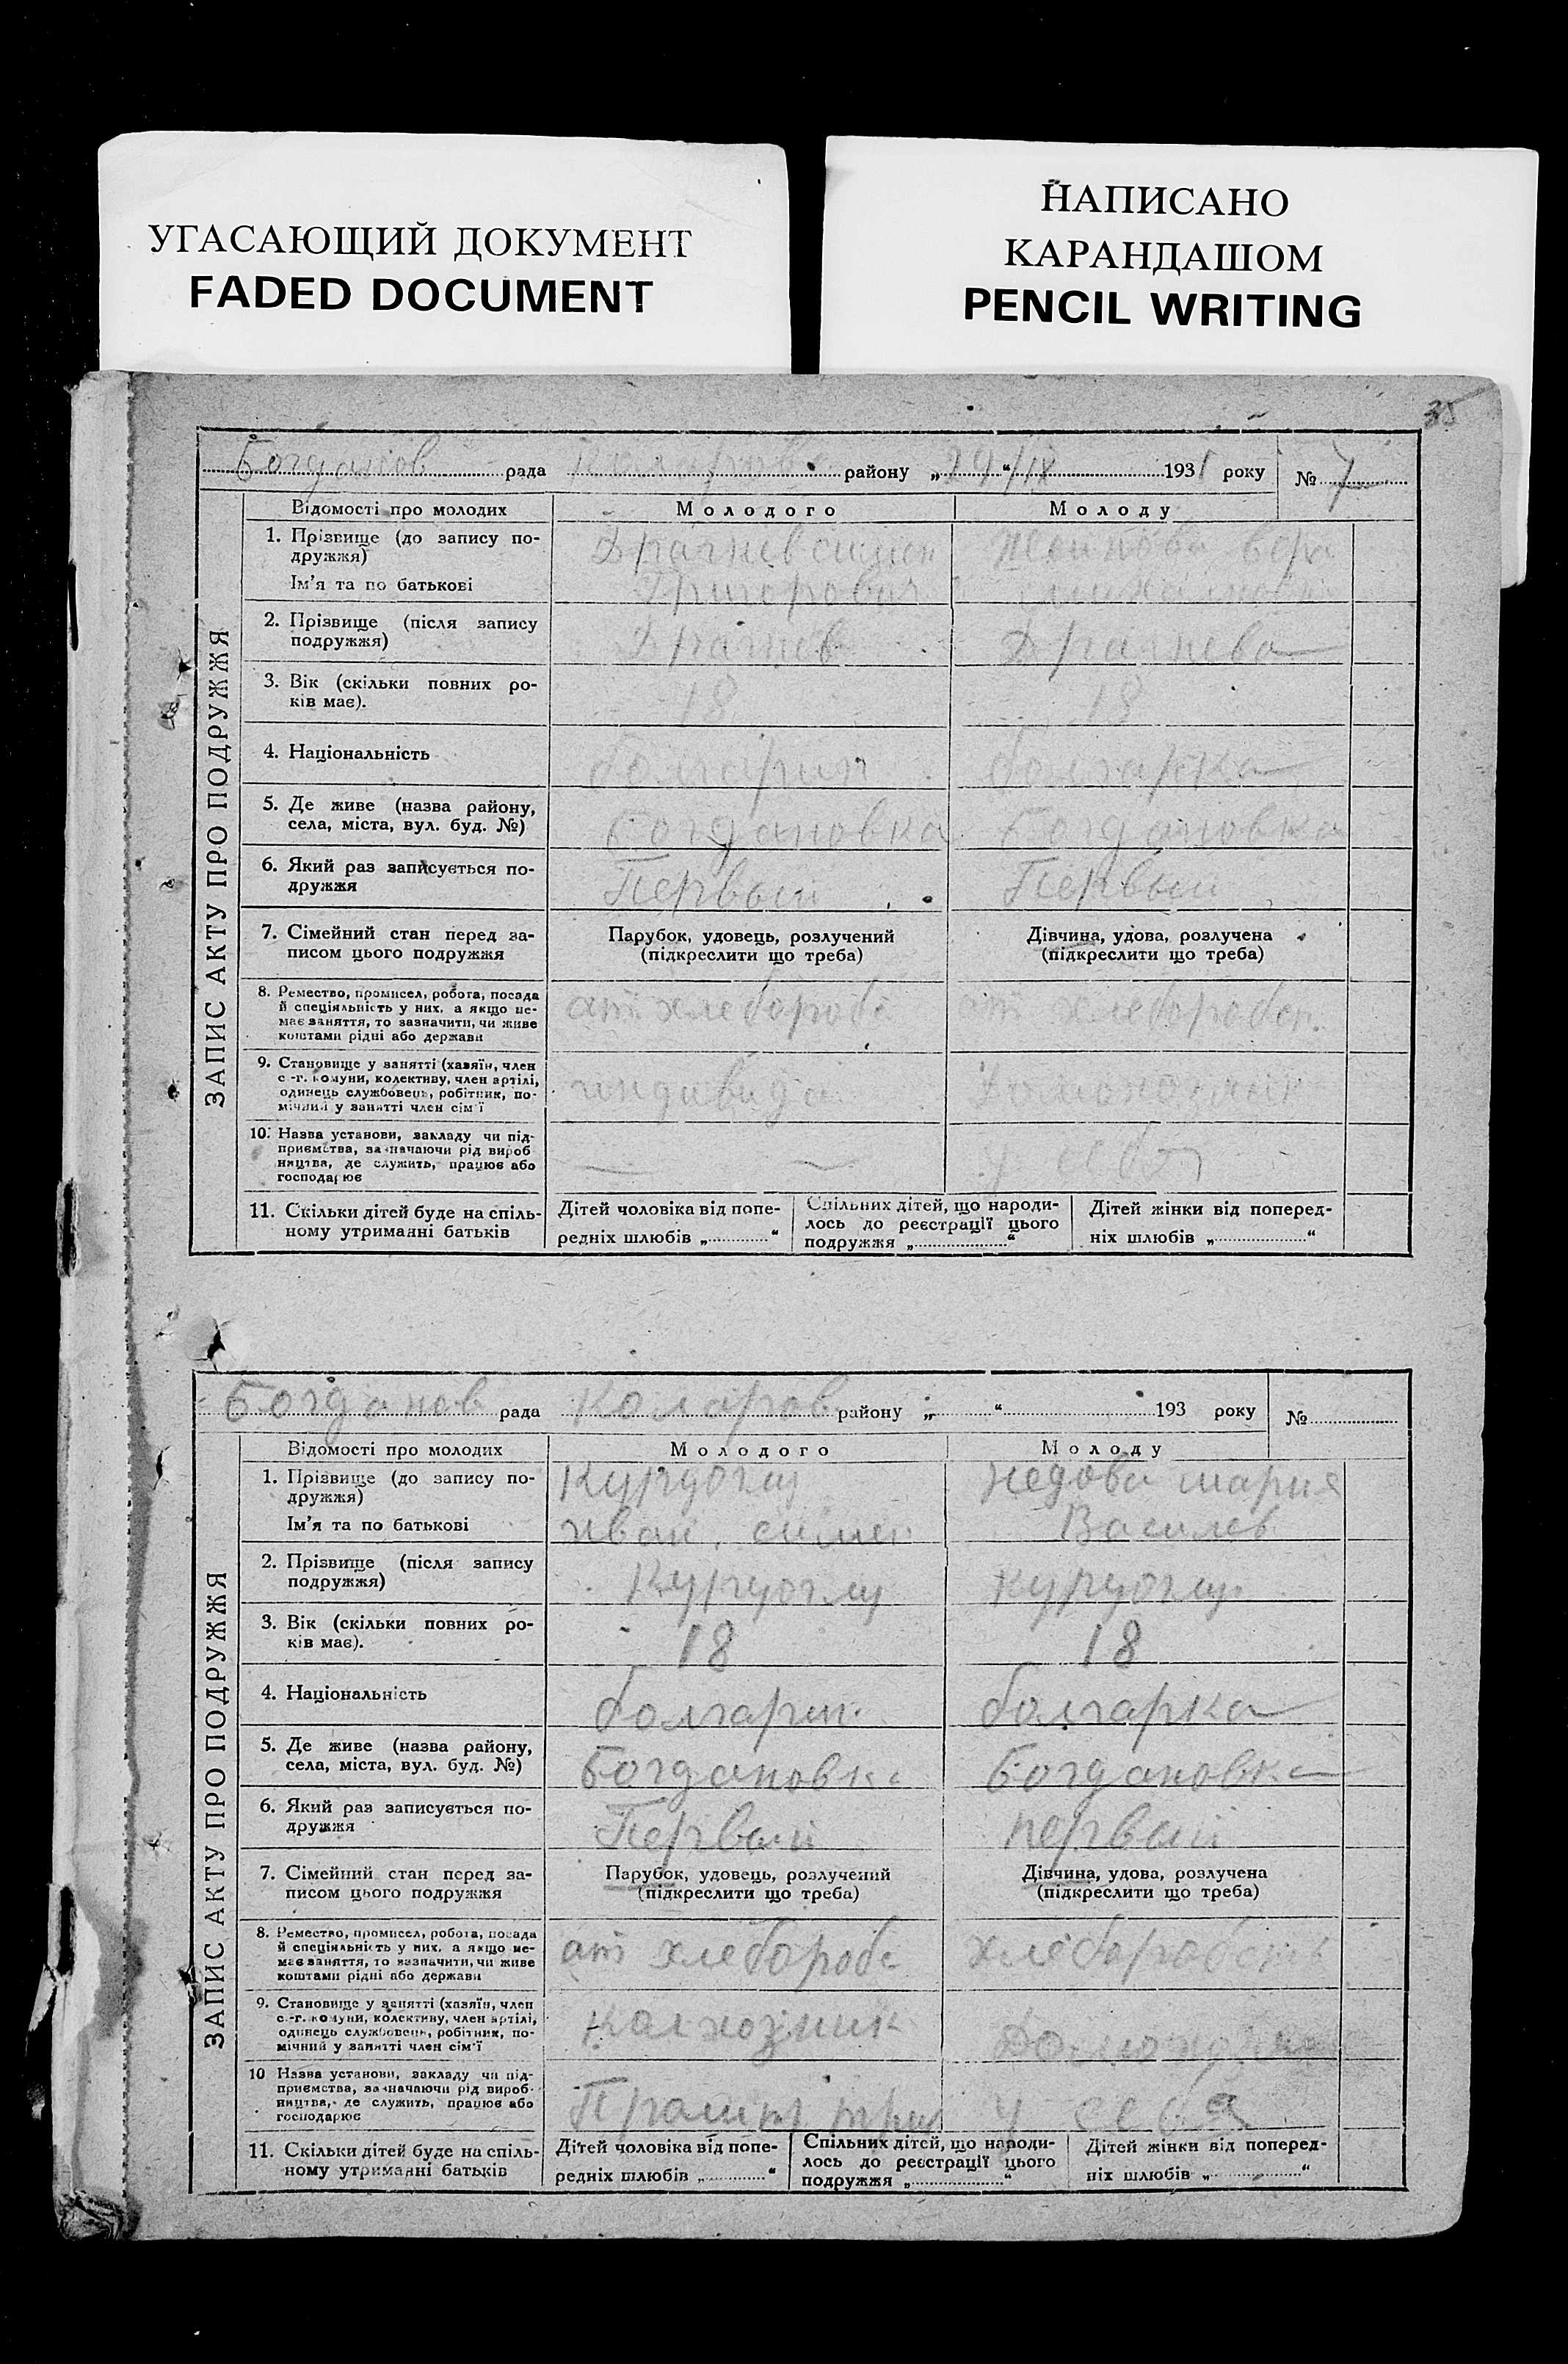 УГАСАЮЩИЙ ДОКУМЕНТ
FADED DOCUMENT
НАПИСАНО
КАРАНДАШОМ
PENCIL WRITING
35
Богданов рада району „29/IX“ 1931 року № 7
Відомості про молодих Молодого Молоду
ЗАПИС АКТУ ПРО ПОДРУЖЖЯ
1. Прізвище (до запису по-
дружжя)
Ім'я та по батькові
Драгнев симен
Григорович
вера
2. Прізвище (після запису
подружжя)
Драгнев Драгнева
3. Вік (скільки повних ро-
ків має).
18 18
4. Національність
болгарин болгарка
5. Де живе (назва району,
села, міста, вул. буд. №)
Богдановка Богдановка
6. Який раз записується по-
дружжя
Первый Первый
7. Сімейний стан перед за-
писом цього подружжя
Парубок, удовець, розлучений
(підкреслити що треба)
Дівчина, удова, розлучена
(підкреслити що треба)
8. Ремество, промисел, робота, посада
й спеціяльність у них, а якщо не-
має заняття, то зазначити, чи живе
коштами рідні або держави
хлебороб
9. Становище у занятті (хазяїн, член
с.-г. комуни, колективу, член артілі,
одинець службовець, робітник, по-
мічний у занятті член сім'ї
10. Назва установи, закладу чи під-
приємства, зазначаючи рід вироб
ництва, де служить, працює або
господарює
у
11. Скільки дітей буде на спіль-
ному утриманні батьків
Дітей чоловіка від попе-
редніх шлюбів „ “
Спільних дітей, що народи-
лось до реєстрації цього
подружжя „ “
Дітей жінки від поперед-
ніх шлюбів „ “
Богданов рада Коларов району „ “ 193 року №
Відомості про молодих Молодого Молоду
ЗАПИС АКТУ ПРО ПОДРУЖЖЯ
1. Прізвище (до запису по-
дружжя)
Ім'я та по батькові
Курдоглу
иван. симен
Недова мария
Василев
2. Прізвище (після запису
подружжя)
Курдоглу Курдоглу
3. Вік (скільки повних ро-
ків має).
18 18
4. Національність
болгарин болгарка
5. Де живе (назва району,
села, міста, вул. буд. №)
Богдановка Богдановка
6. Який раз записується по-
дружжя
Первый первый
7. Сімейний стан перед за-
писом цього подружжя
Парубок, удовець, розлучений
(підкреслити що треба)
Дівчина, удова, розлучена
(підкреслити що треба)
8. Ремество, промисел, робота, посада
й спеціяльність у них, а якщо не-
має заняття, то зазначити, чи живе
коштами рідні або держави
ат хлебороба
9. Становище у занятті (хазяїн, член
с.-г. комуни, колективу, член артілі,
одинець службовець, робітник, по-
мічний у занятті член сім'ї
Калхозник
10 Назва установи, закладу чи під-
приємства, зазначаючи рід вироб-
ництва, де служить, працює або
господарює
у себя
11. Скільки дітей буде на спіль-
ному утриманні батьків
Дітей чоловіка від попе-
редніх шлюбів „ “
Спільних дітей, що народи-
лось до реєстрації цього
подружжя „ “
Дітей жінки від поперед-
ніх шлюбів „ “